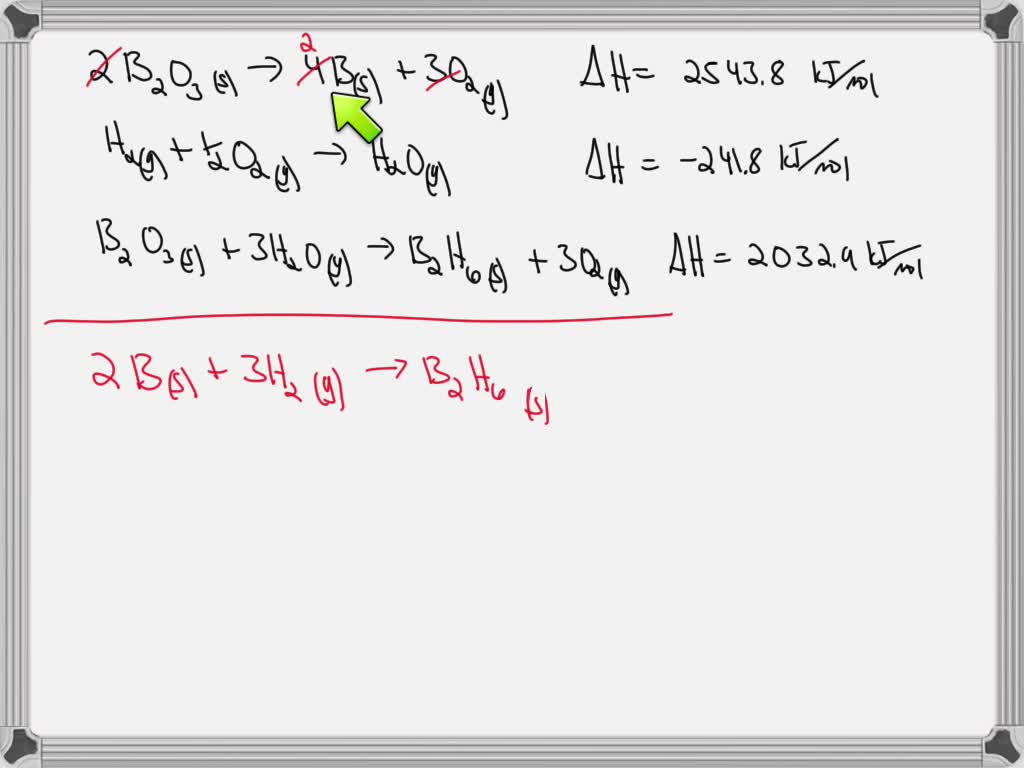 2 B₂O₃ (s) → 2 4B(s) + 3O₂(g) ΔH = 2543.8 kJ/mol
H₂(g) + ½O₂(g) → H₂O(g) ΔH = -241.8 kJ/mol
B₂O₃(s) + 3H₂O(g) → B₂H₆(s) + 3O₂(g) ΔH = 2032.9 kJ/mol
2B(s) + 3H₂(g) → B₂H₆ (s)